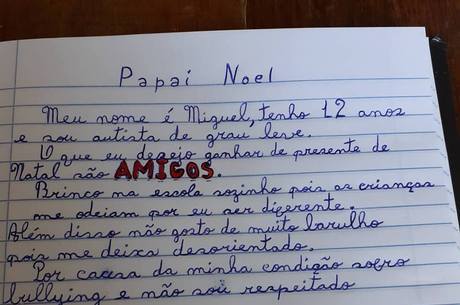 Papai Noel
Meu nome é Miguel, tenho 12 anos
e sou autista de grau leve.
O que eu desejo ganhar de presente de
Natal são AMIGOS.
Brinco na escola sozinho pois as crianças
me odeiam por eu ser diferente.
Além disso não gosto de muito barulho
pois me deixa desorientado.
Por causa da minha condição sofro
bullying e não sou respeitado